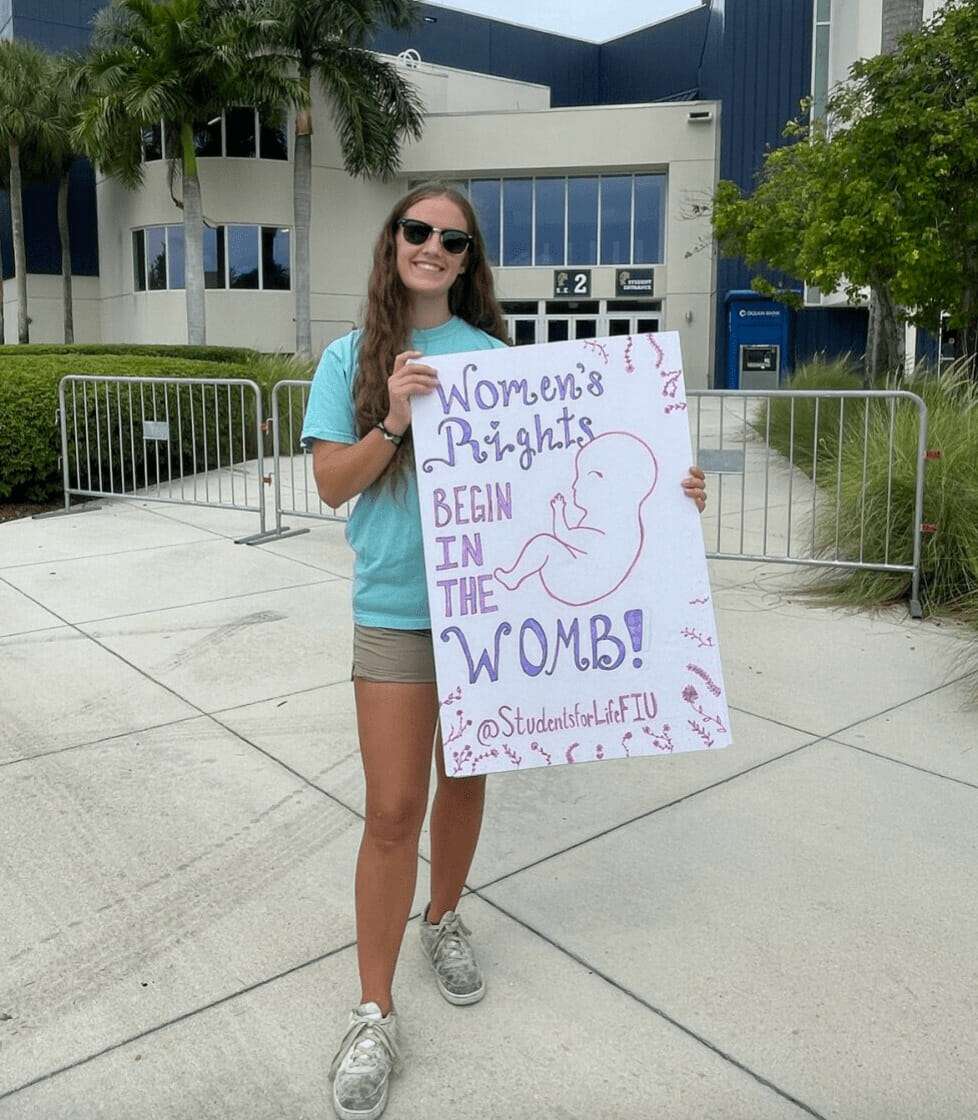 OCEAN BANK
2
STUDENT
ENTRANCE
Women's
Rights
BEGIN
IN
THE
WOMB!
@StudentsforLifeFIU